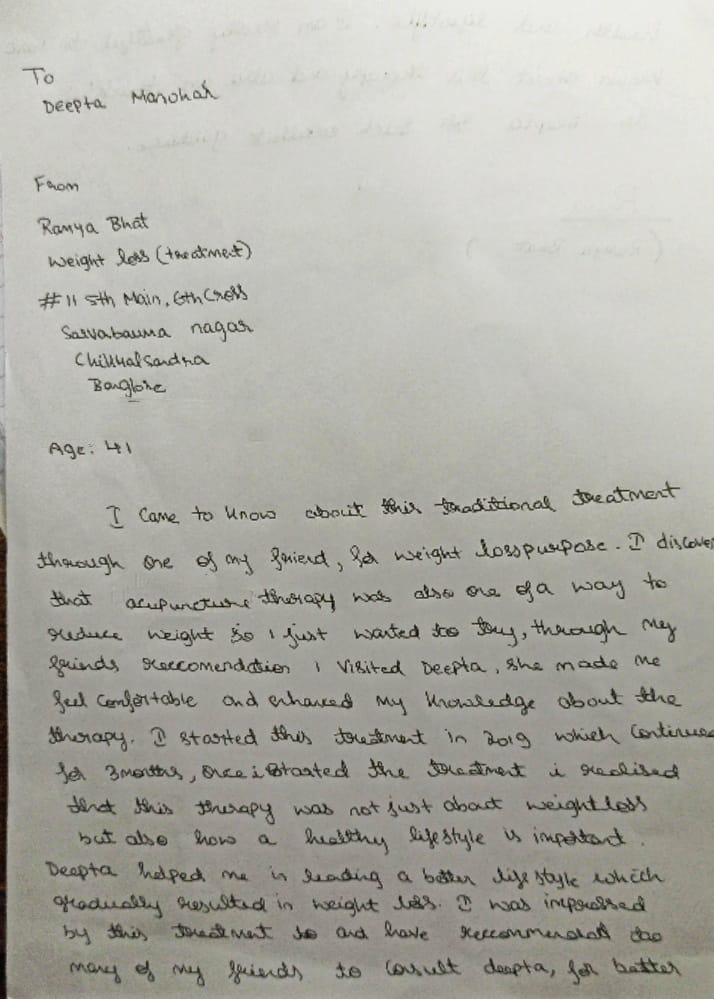 To
Deepta Manohar
From
Ramya Bhat
Weight loss (treatment)
#11 5th Main, 6th Cross
Sarvabauma nagar
Chikkalsandra
Banglore
Age: 41
I came to know about this traditional treatment
through one of my friend, for weight losspurpose. I discover
that acupuncture therapy was also one of a way to
reduce weight so i just wanted to try, through my
friends reccomendation i visited Deepta, she made me
feel confortable and enhanced my knowledge about the
therapy. I started this treatment in 2019 which continues
for 3months, once i started the treatment i realised
that this therapy was not just about weightloss
but also how a healthy lifestyle is important.
Deepta helped me in leading a better life style which
gradually resulted in weight loss. I was impressed
by this treatment so and have reccommended too
many of my friends to consult deepta, for better